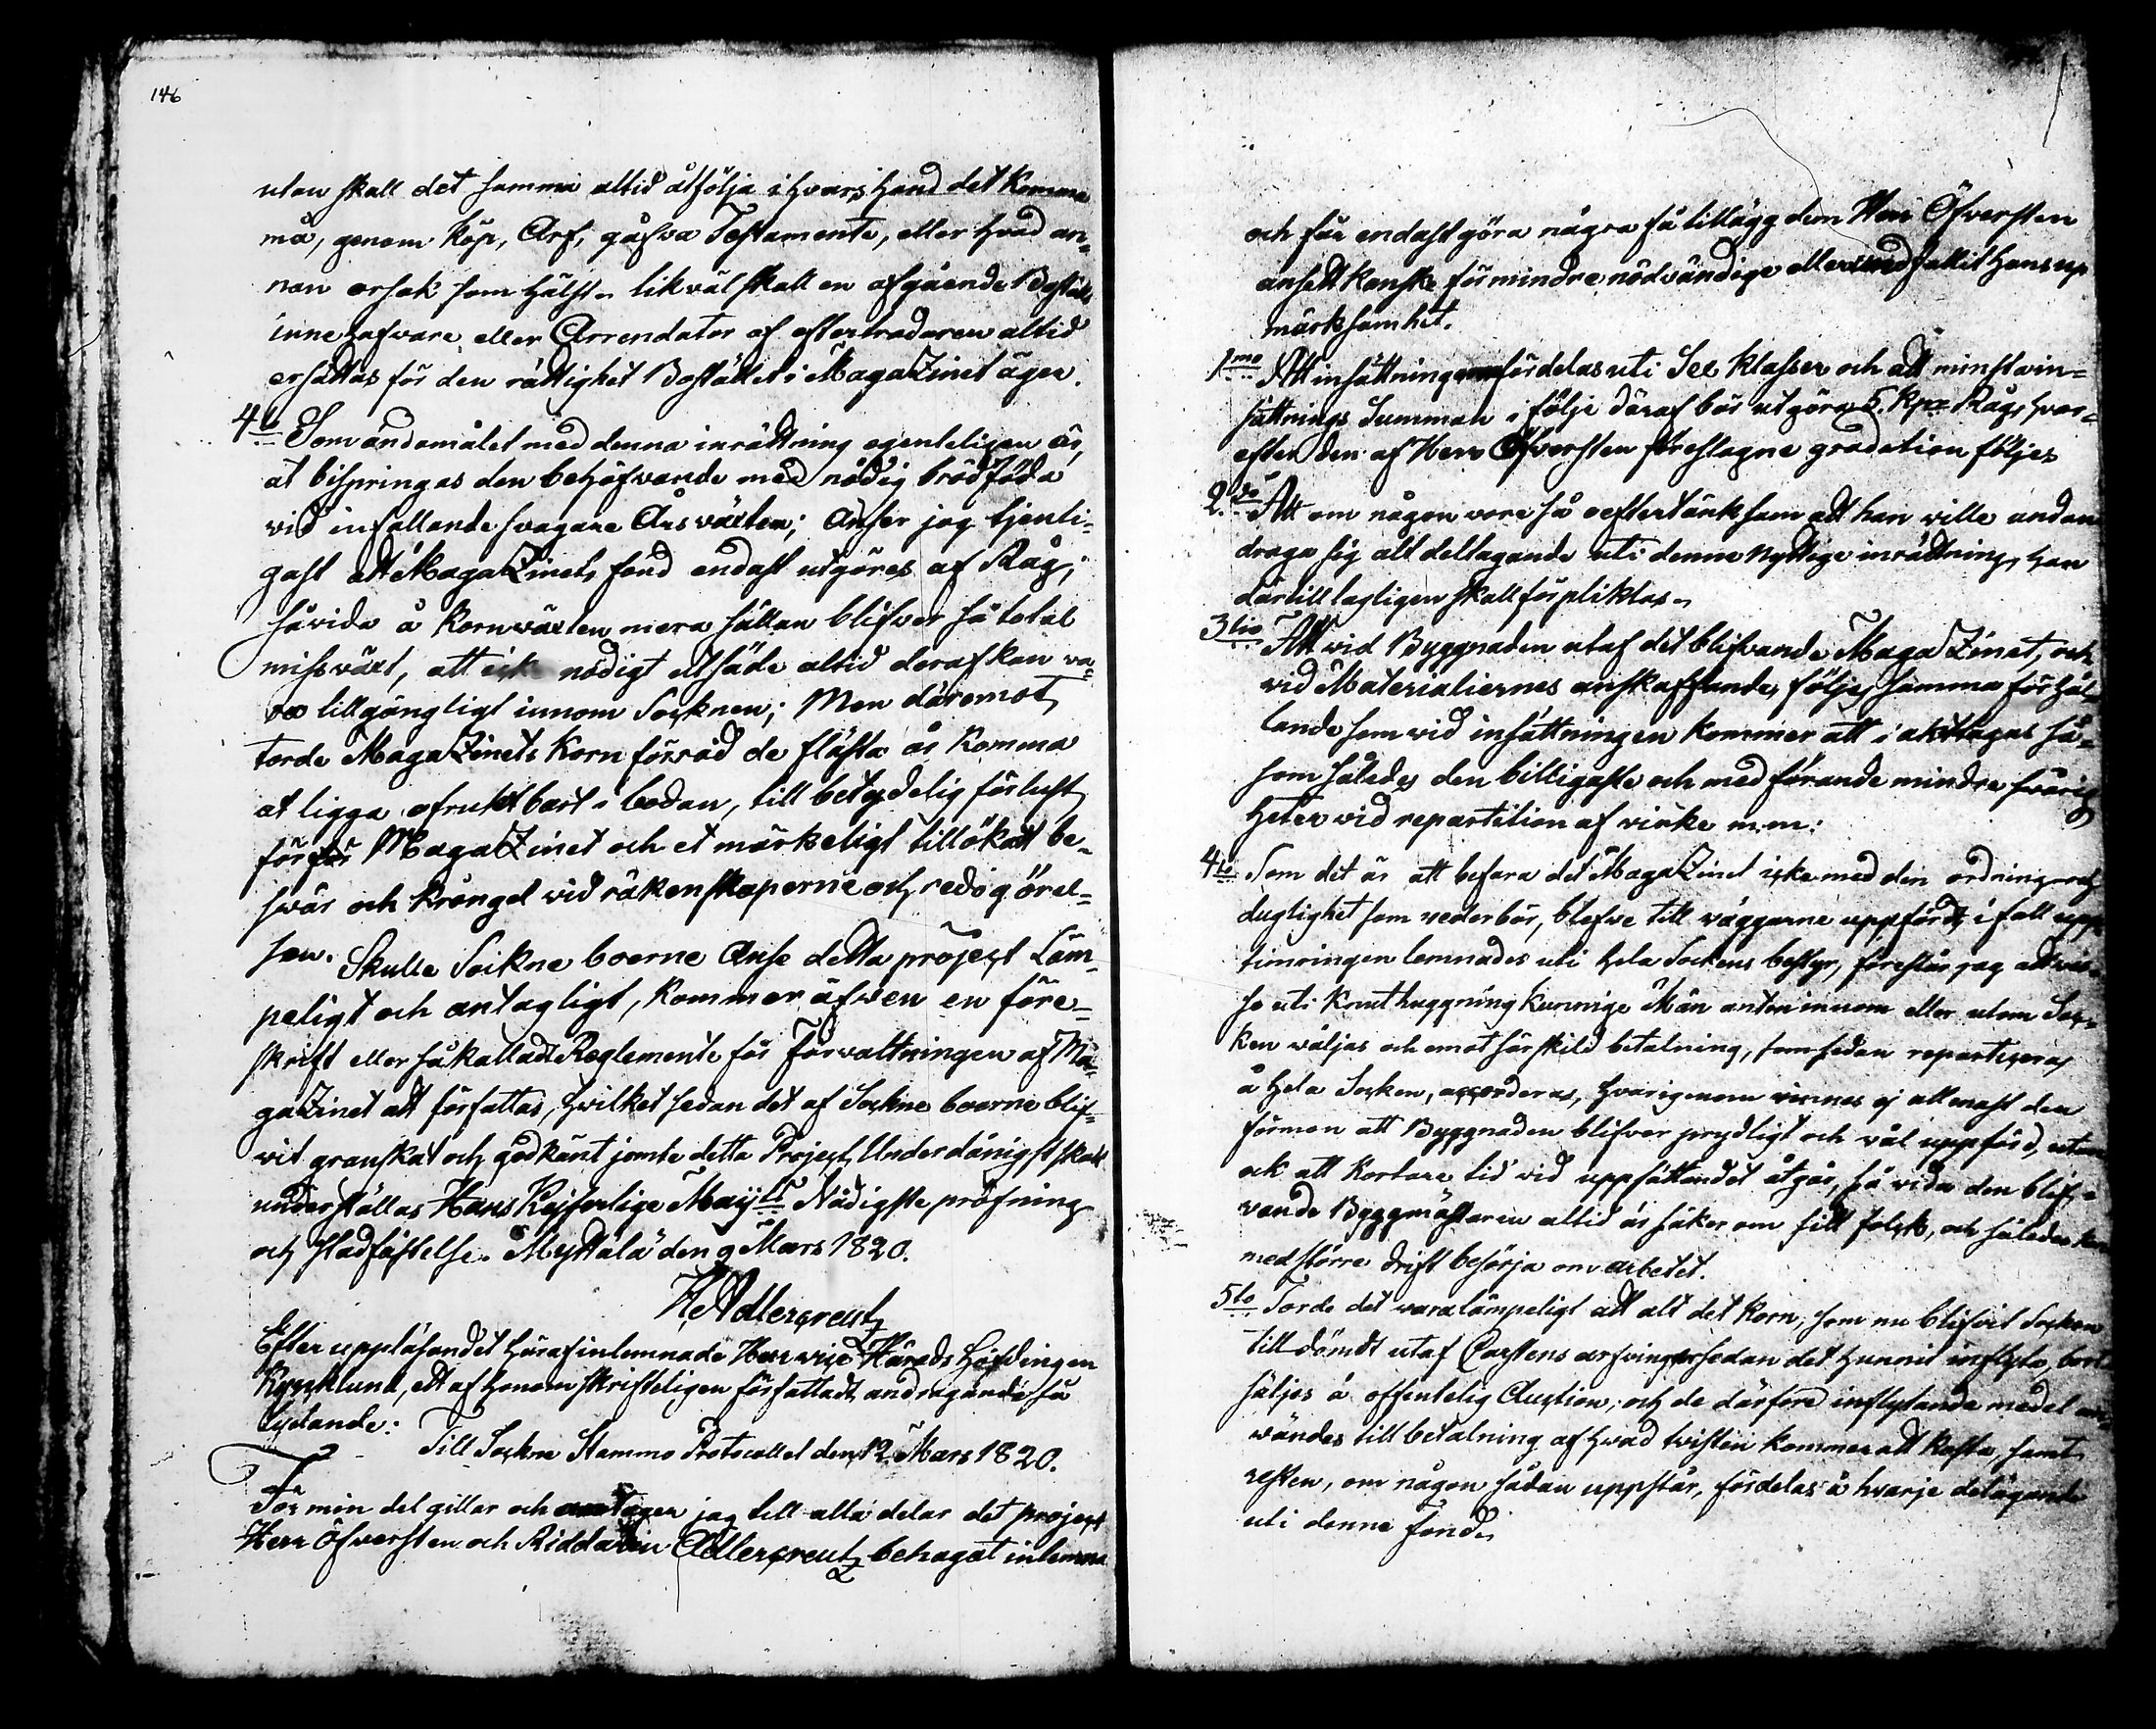 146
utan skall det samma altid åtfölja i hvars hand det komma
må, genom köp, Arf, gåfva Testamente, eller hvad an-
nan orsak som hälst. likväl skall en afgående Boställs
innehafvare eller Arrendator af efterträdaren altid
ersättas för den rättighet Bostället i MagaZinet äger.
4to Som ändamålet med denna inrättning egenteligen är,
at bispringas den behöfvande med nödig brödföda
vid infallande svagare Årsväxter; Anser jag tjenli-
gast att MagaZinets fond endast utgöres af Råg,
såvida å Kornväxten mera sällan blifver så total
missväxt, att icke nödigt utsäde altid deraf kan va-
ra tillgängligt innom Socknen; Men däremot,
torde MagaZinets Korn förråd de flästa år komma
at ligga ofruktbart i boden, till betydelig förlust
för MagaZinet och et märkeligt tillökat be-
svär och krångel vid räkenskaperne och redogörel-
sen. Skulle Sockne boerne Anse detta project Läm-
peligt och antagligt, kommer äfven en före-
skrift eller så kalladt Reglemente för Förvaltningen af Ma-
gaZinet att författas, hvilket sedan det af Sockne boerne blif-
vit granskat och godkänt jemte detta Project Underdånigst skall
underställas Hans Kejserlige Maij:ts Nådigste pröfning
och stadfästelse. Myttälä den 9 Mars 1820.
H. Adlercreutz
Efter uppläsandet häraf inlemnade Herr vice Härads Höfdingen
Kyrklund, ett af honom skrifteligen författadt andragande så
lydande:
Till Sockne Stemmo Protocollet den 12 Mars 1820.
För min del gillar och antager jag till alla delar det project
Herr Öfversten och Riddaren Adlercreutz behagat inlemna
och får endast göra några få tillägg dem Herr Öfversten
ansett kanske för mindre nödvändige eller undfallit Hans up
märksamhet.
1mo Att insättningen fördelas uti Sex klasser och att minsta in-
sättnings Summan i följe däraf bör utgöra 5. Kpr Råg, hvar-
efter den af Herr Öfversten föreslagne gradation följes
2do Att om någon vore så oeftertänksam att han ville undan
draga sig alt deltagande uti denne nyttige inrättning, han
därtill lagligen skall förpliktas.
3tio Att vid Byggnaden utaf det blifvande MagaZinet, och
vid Materialiernes anskaffande, följes samma förhål-
lande som vid insättningen kommer att i akttagas så-
som således den billigaste och medförande mindre svårig
heter vid repartition af virke m:m:
4to Som det är att befara det MagaZinet icke med den ordning och
duglighet som vederbör, blefve till väggarne uppfördt, i fall upp
timringen lemnades uti hela Sockens bestyr, föreslår jag att vis-
se uti Knuthuggning kunnige Män anten innom eller utom Soc-
ken väljas och emot särskild betalning, som sedan repartiseras
å hela Socken, accorderas, hvarigenom vinnes ej allenast den
förmon att Byggnaden blifver prydligt och väl uppförd, utan
ock att kortare tid vid uppsättandet åtgår, så vida den blif-
vande Byggmästaren altid är säker om sitt folck, och således kan
med större drift besörja om arbetet.
5to Torde det vara lämpeligt att alt det Korn, som nu blifvit Socken
till dömdt utaf Carstens arfvingar sedan det hunnit inflyta, bort-
säljes å offentelig Auction, och de därföre inflytande medel an-
wändes till betalning af hvad tvisten kommer att kosta, samt
resten, om någon sådan uppstår, fördelas å hvarje delägande
uti denne fond.